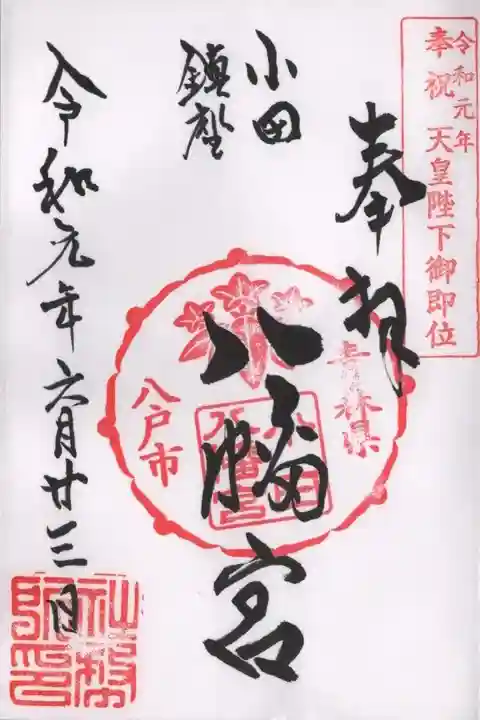 令和元年
奉祝 天皇陛下御即位
奉拝
小田
鎮座
八幡宮
青森県
八戸市
小田
八幡宮
令和元年六月廿三日
社務所印